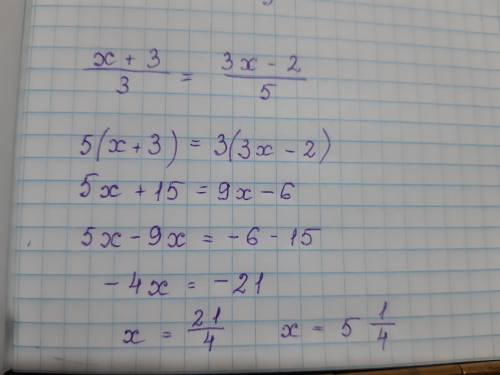 (x + 3)/3 = (3x - 2)/5
5(x + 3) = 3(3x - 2)
5x + 15 = 9x - 6
5x - 9x = -6 - 15
-4x = -21
x = 21/4 x = 5 1/4